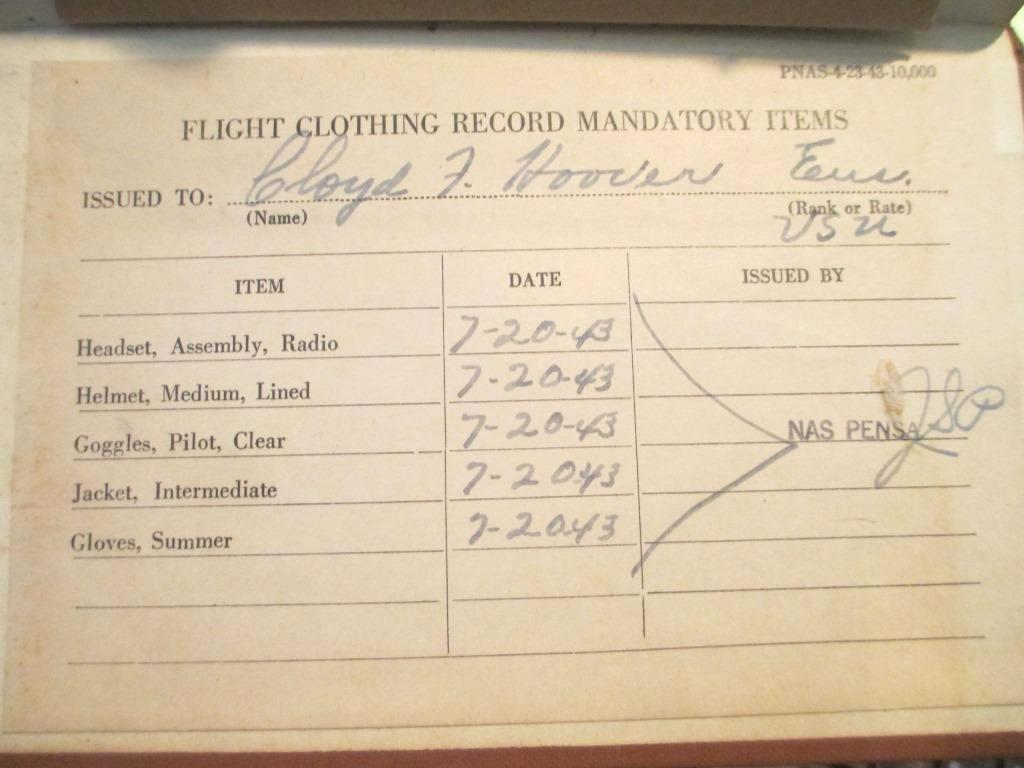 PNAS-4-23-43-10,000
FLIGHT CLOTHING RECORD MANDATORY ITEMS
ISSUED TO: Cloyd F. Hoover Ens.
(Name) (Rank or Rate)
USN
ITEM DATE ISSUED BY
Headset, Assembly, Radio 7-20-43
Helmet, Medium, Lined 7-20-43
Goggles, Pilot, Clear 7-20-43 NAS PENSA
Jacket, Intermediate 7-20-43
Gloves, Summer 7-20-43